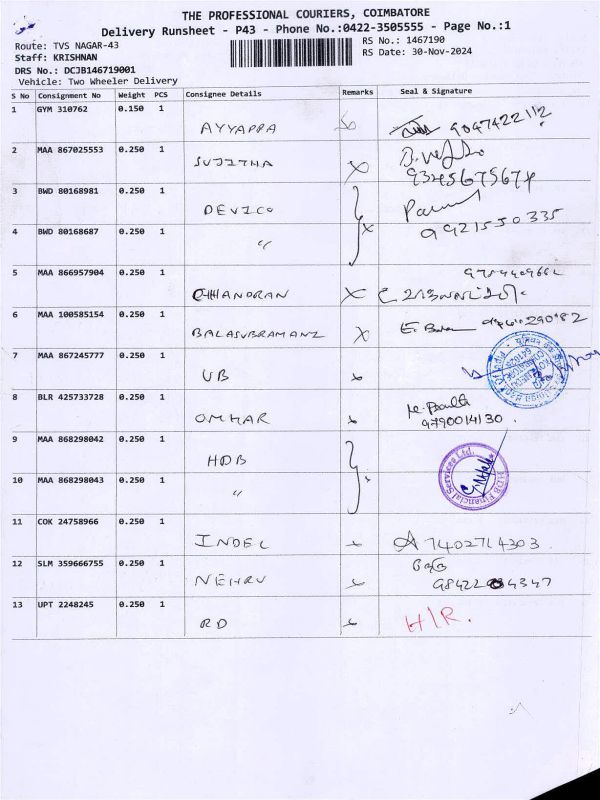 THE PROFESSIONAL COURIERS, COIMBATORE
Delivery Runsheet - P43 - Phone No.:0422-3505555 - Page No.:1
Route: TVS NAGAR-43
RS No.: 1467190
Staff: KRISHNAN
RS Date: 30-Nov-2024
DRS No.: DCJB146719001
Vehicle: Two Wheeler Delivery
S No Consignment No Weight PCS Consignee Details Remarks Seal & Signature
1 GYM 310762 0.150 1
AYYAPPA 9047422112
2 MAA 867025553 0.250 1
SUJITHA
9345675674
3 BWD 80168981 0.250 1
DEVICO
9921550335
4 BWD 80168687 0.250 1
"
5 MAA 866957904 0.250 1
CHHANDRAN
6 MAA 100585154 0.250 1
BALASUBRAMANI
7 MAA 867245777 0.250 1
UB
8 BLR 425733728 0.250 1
OMKAR
9790014130
9 MAA 868298042 0.250 1
HDB
HDB Financial Services Ltd.
10 MAA 868298043 0.250 1
"
11 COK 24758966 0.250 1
INDEL 7402714303
12 SLM 359666755 0.250 1
NEHRU
13 UPT 2248245 0.250 1
RD H/R.